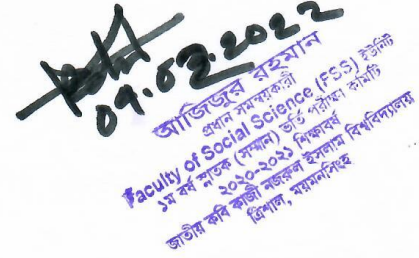 07.03.2022
আজিজুর রহমান
প্রধান সমন্বয়কারী
Faculty of Social Science (FSS) ইউনিট
১ম বর্ষ স্নাতক (সম্মান) ভর্তি পরীক্ষা কমিটি
২০২০-২০২১ শিক্ষাবর্ষ
জাতীয় কবি কাজী নজরুল ইসলাম বিশ্ববিদ্যালয়
ত্রিশাল, ময়মনসিংহ